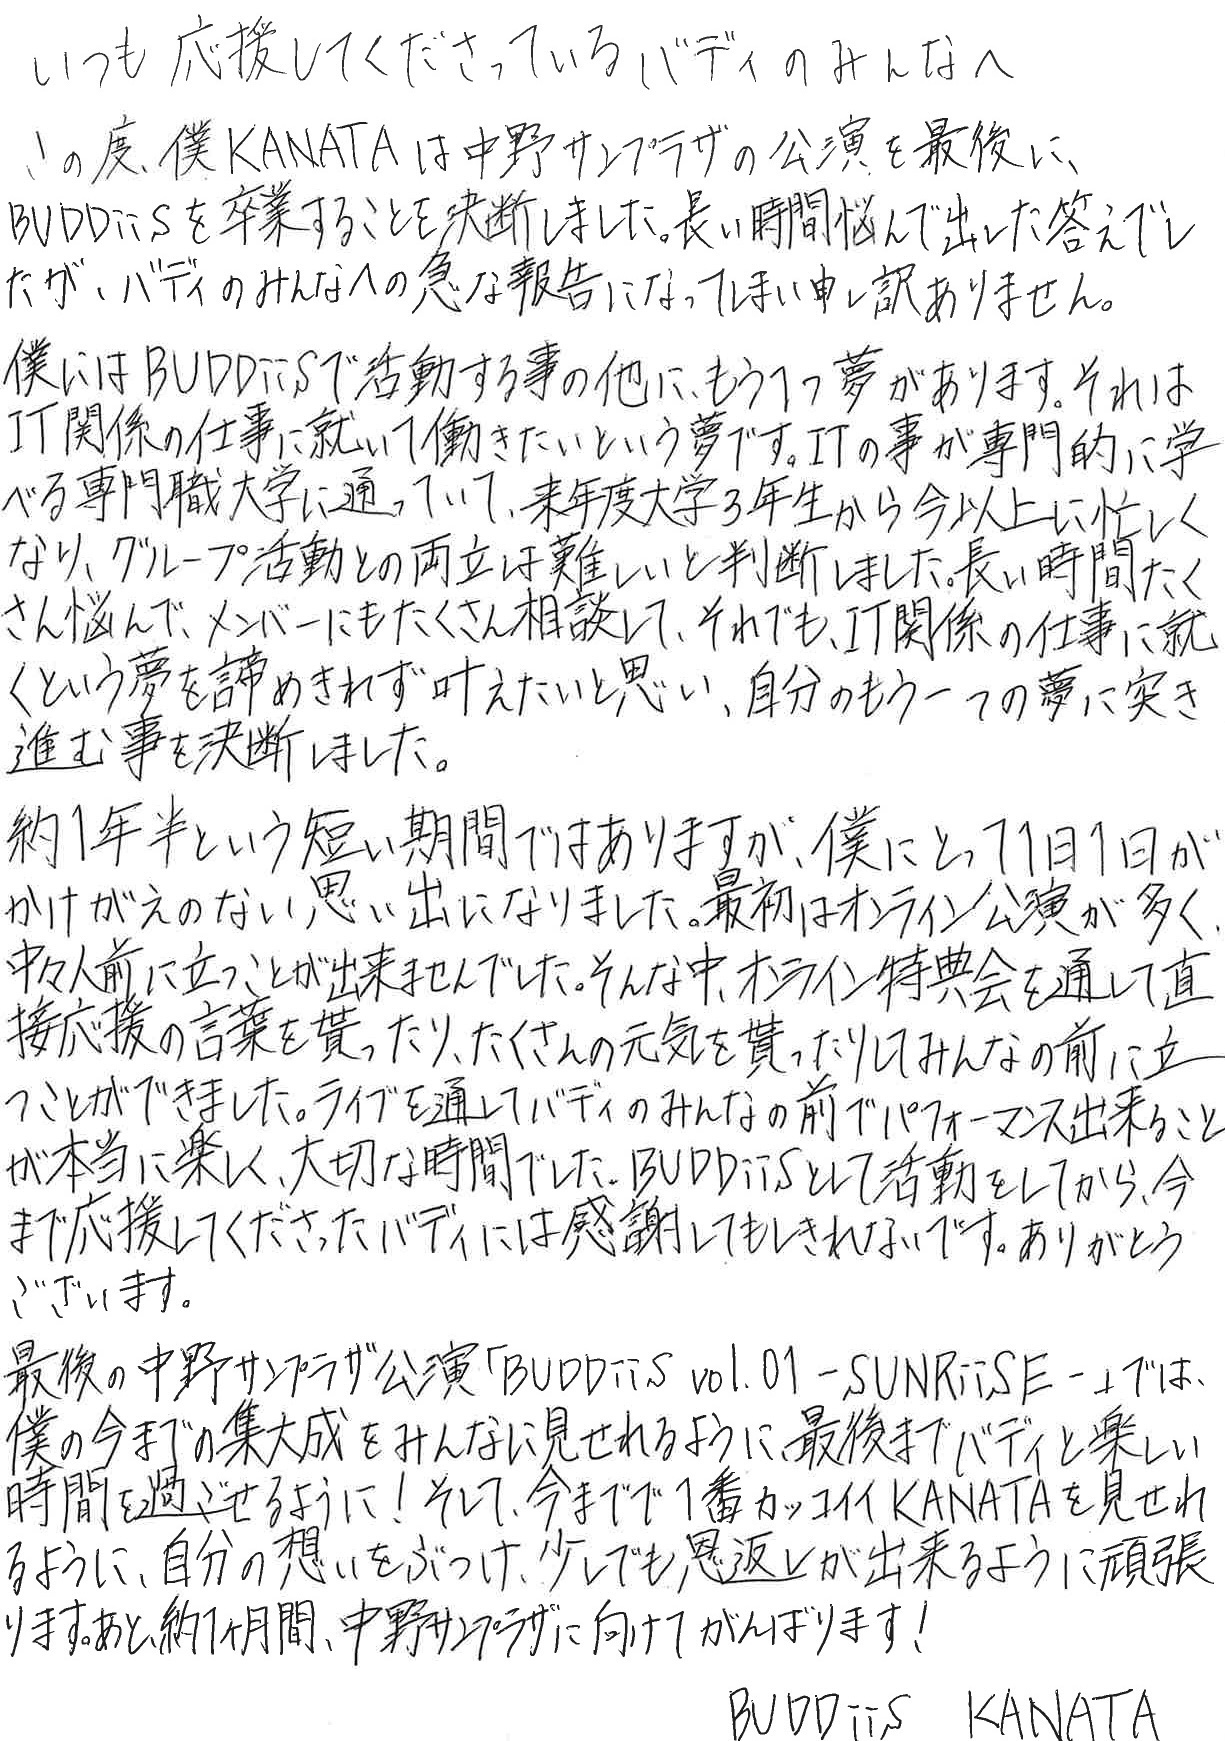 いつも応援してくださっているバディのみんなへ
この度、僕KANATAは中野サンプラザの公演を最後に、
BUDDiiSを卒業することを決断しました。長い時間悩んで出した答えでし
たが、バディのみんなへの急な報告になってしまい申し訳ありません。
僕にはBUDDiiSで活動する事の他に、もう1つ夢があります。それは
IT関係の仕事に就いて働きたいという夢です。ITの事が専門的に学
べる専門職大学に通っていて、来年度大学3年生から今以上に忙しく
なり、グループ活動との両立は難しいと判断しました。長い時間たく
さん悩んで、メンバーにもたくさん相談して、それでも、IT関係の仕事に就
くという夢を諦めきれず叶えたいと思い、自分のもう一つの夢に突き
進む事を決断しました。
約1年半という短い期間ではありますが、僕にとって1日1日が
かけがえのない思い出になりました。最初はオンライン公演が多く、
中々人前に立つことが出来ませんでした。そんな中、オンライン特典会を通して直
接応援の言葉を貰ったり、たくさんの元気を貰ったりしてみんなの前に立
つことができました。ライブを通してバディのみんなの前でパフォーマンス出来ること
が本当に楽しく、大切な時間でした。BUDDiiSとして活動をしてから、今
まで応援してくださったバディには感謝してもしきれないです。ありがとう
ございます。
最後の中野サンプラザ公演「BUDDiiS vol.01 -SUNRiiSE-」では、
僕の今までの集大成をみんなに見せれるように、最後までバディと楽しい
時間を過ごせるように！そして、今までで1番カッコイイKANATAを見せれ
るように、自分の想いをぶつけ、少しでも恩返しが出来るように頑張
ります。あと、約1ヶ月間、中野サンプラザに向けてがんばります！
BUDDiiS KANATA